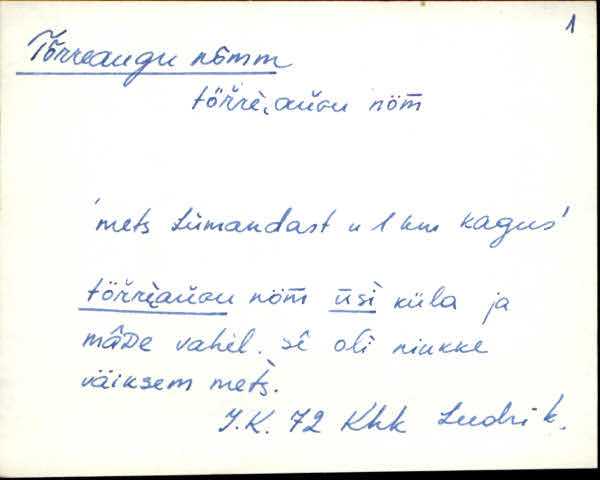 1
Tõrreaugu nõmm
törri̬auğu nöm̄
'mets Lümandast u 1 km kagus'
törri̬auğu nöm̄ ūsì küla ja
mâDe vahèl. sê oli niukke
väiksem metš.
J.K. 72 Khk Ludri k.